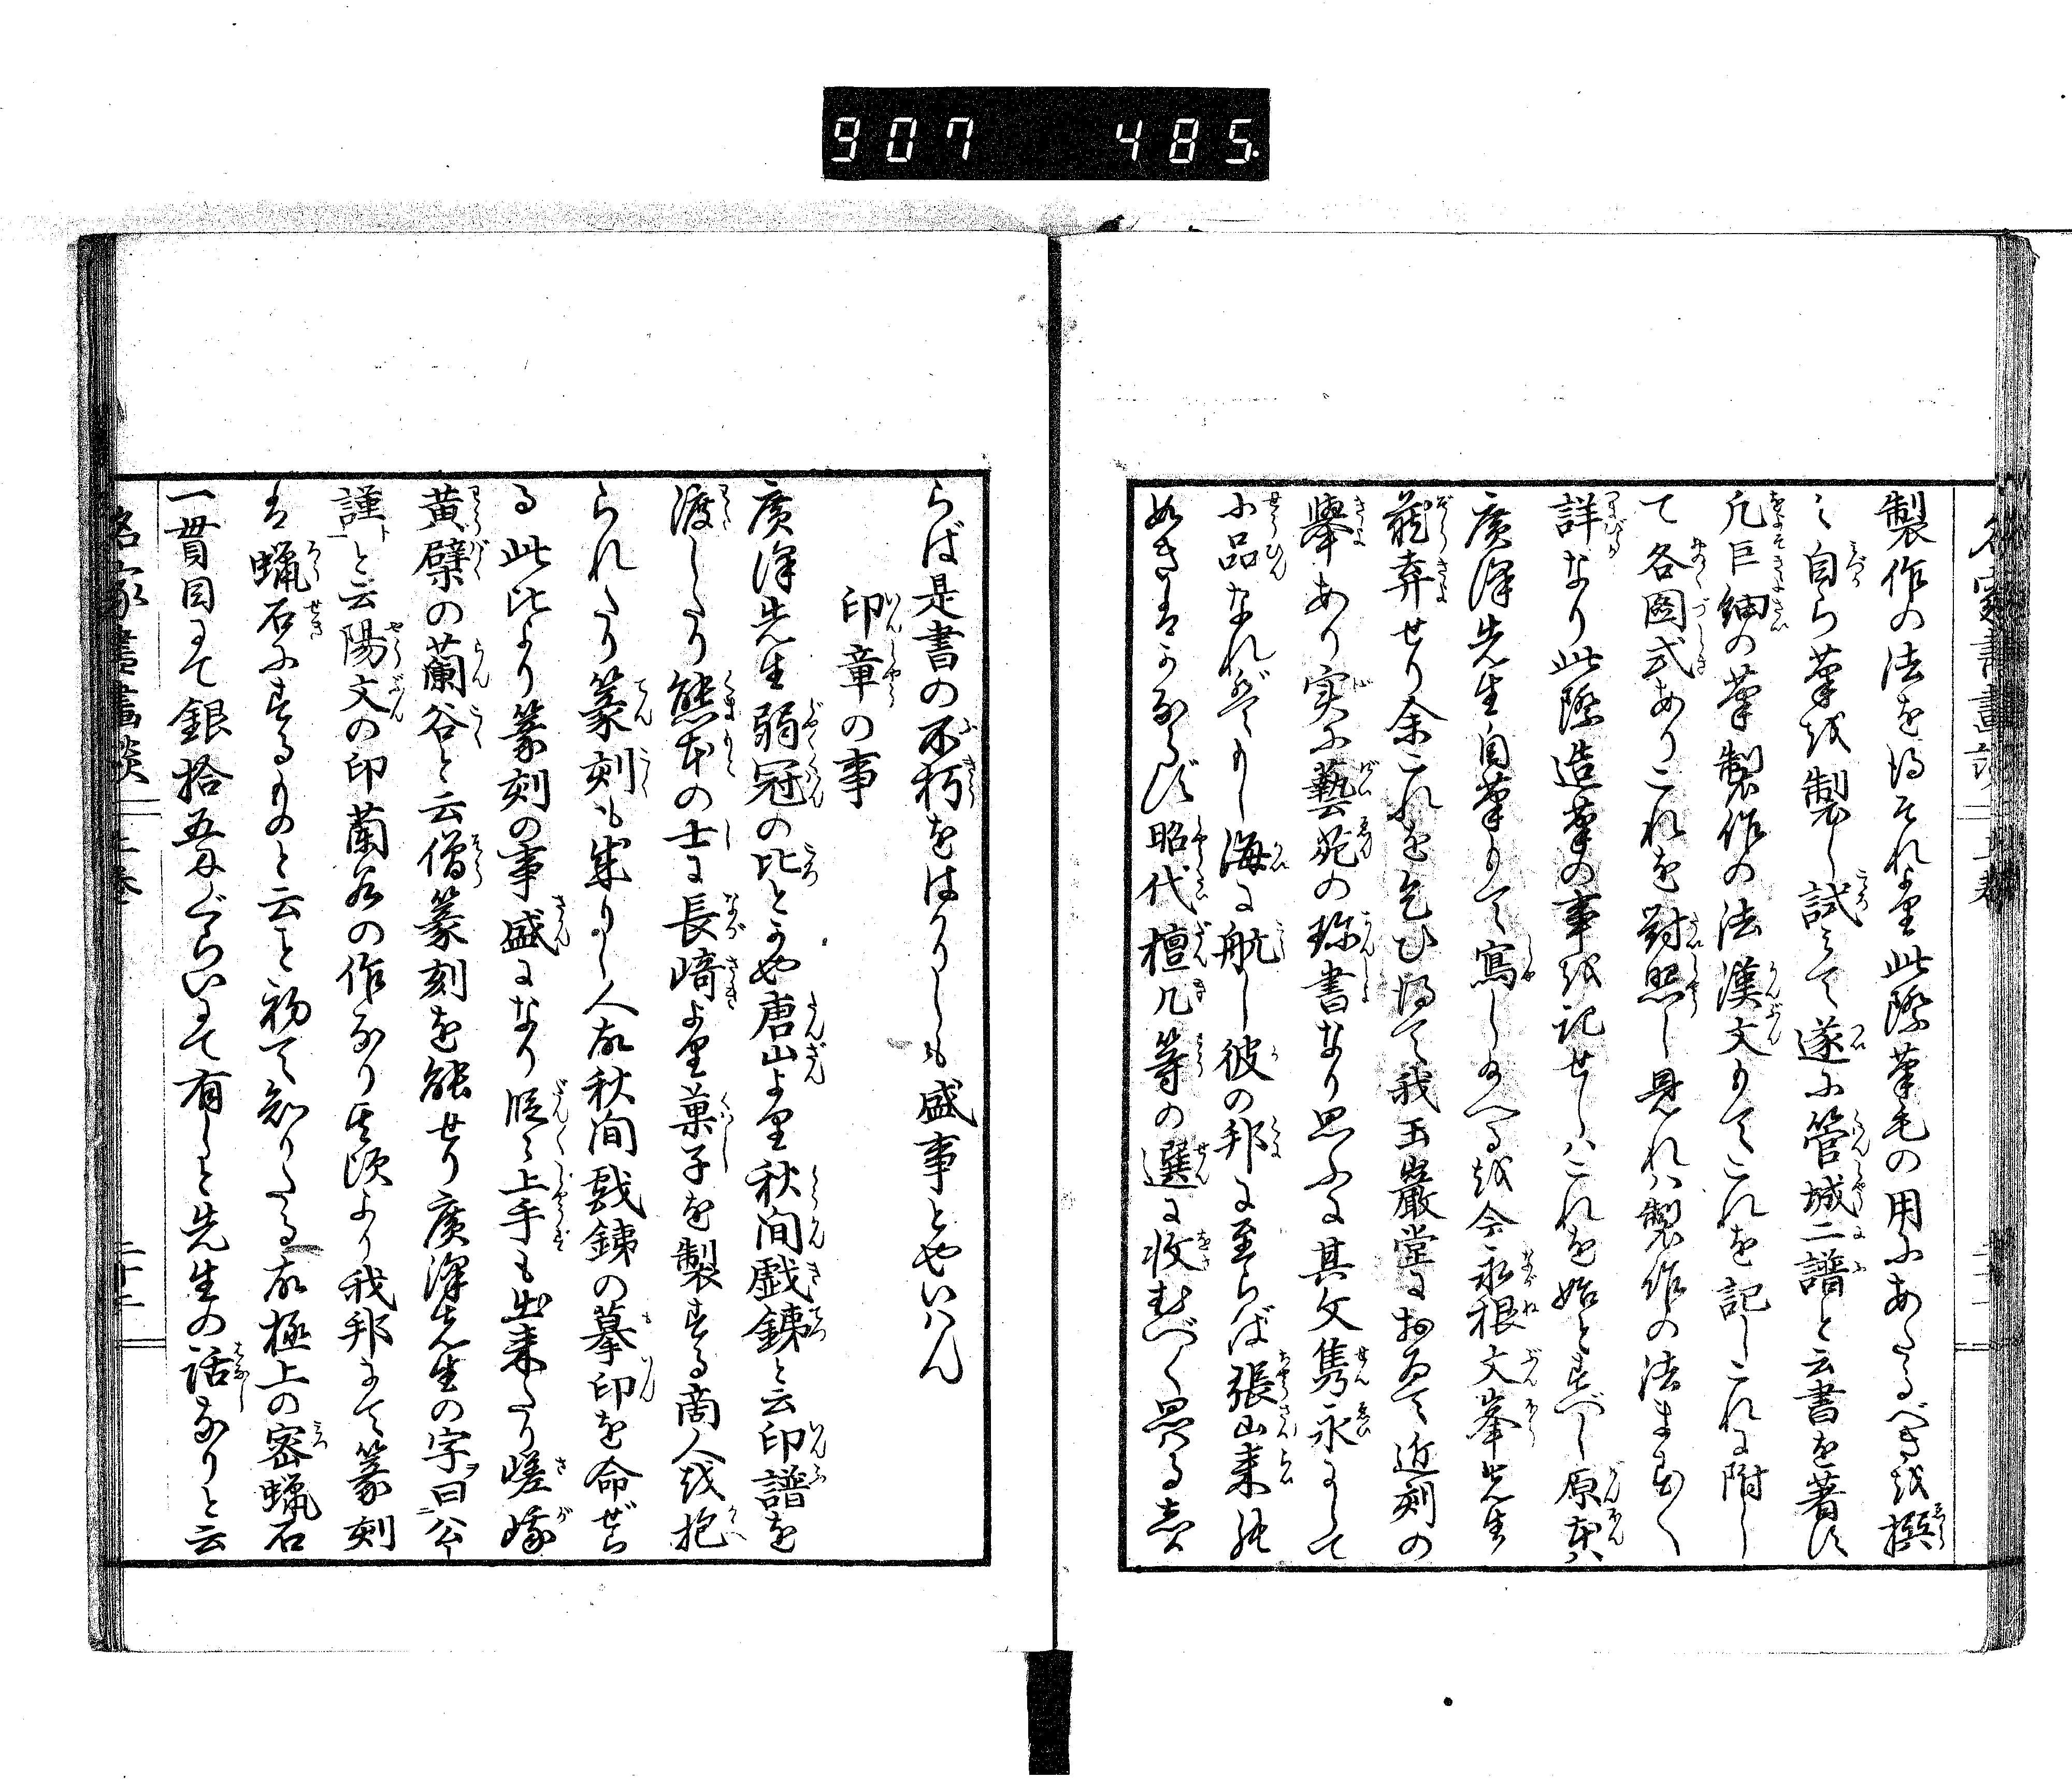 907 485
製作の法を得それより此際筆毛の用にあたるべきを撰
ミ自ら筆を製し試ミて遂に管城二譜と云書を著す
凡巨細の筆製作の法漢文もてこれを記しこれに附し
て各図式ありこれを対照し見れハ製作の法まつたく
詳なり此際造筆の事を記せしハこれを始とすべし原本ハ
廣澤先生自筆もて寫し給へるを今永根文峯先生
蔵弆せり余これを乞ひ得て我玉巖堂におゐて近刻の
擧あり実に藝苑の珎書なり思ふに其文雋永にして
小品なれども海に航し彼の邦に至らば張山来が
如きはかならず昭代檀几等の選に收むべく思ハる志か
らば是書の不朽をはかりしも盛事とやいハん
印章の事
廣澤先生弱冠の比とかや唐山より秋間戯銕と云印譜を
渡したり熊本の士に長崎より菓子を製する商人を抱
られたり篆刻も成りし人故秋間戯銕の摹印を命ぜら
る此比より篆刻の事盛になり段々上手も出来たり嵯峨
黄檗の蘭谷と云僧篆刻を能せり廣澤先生の字曰公
謹と云陽文の印蘭谷の作なり其頃より我邦にて篆刻
は蝋石にするものと云こと初て知りたる故極上の密蝋石
一貫目にて銀拾五匁ぐらいにて有しと先生の話なりと云
名家書畫談 二十二